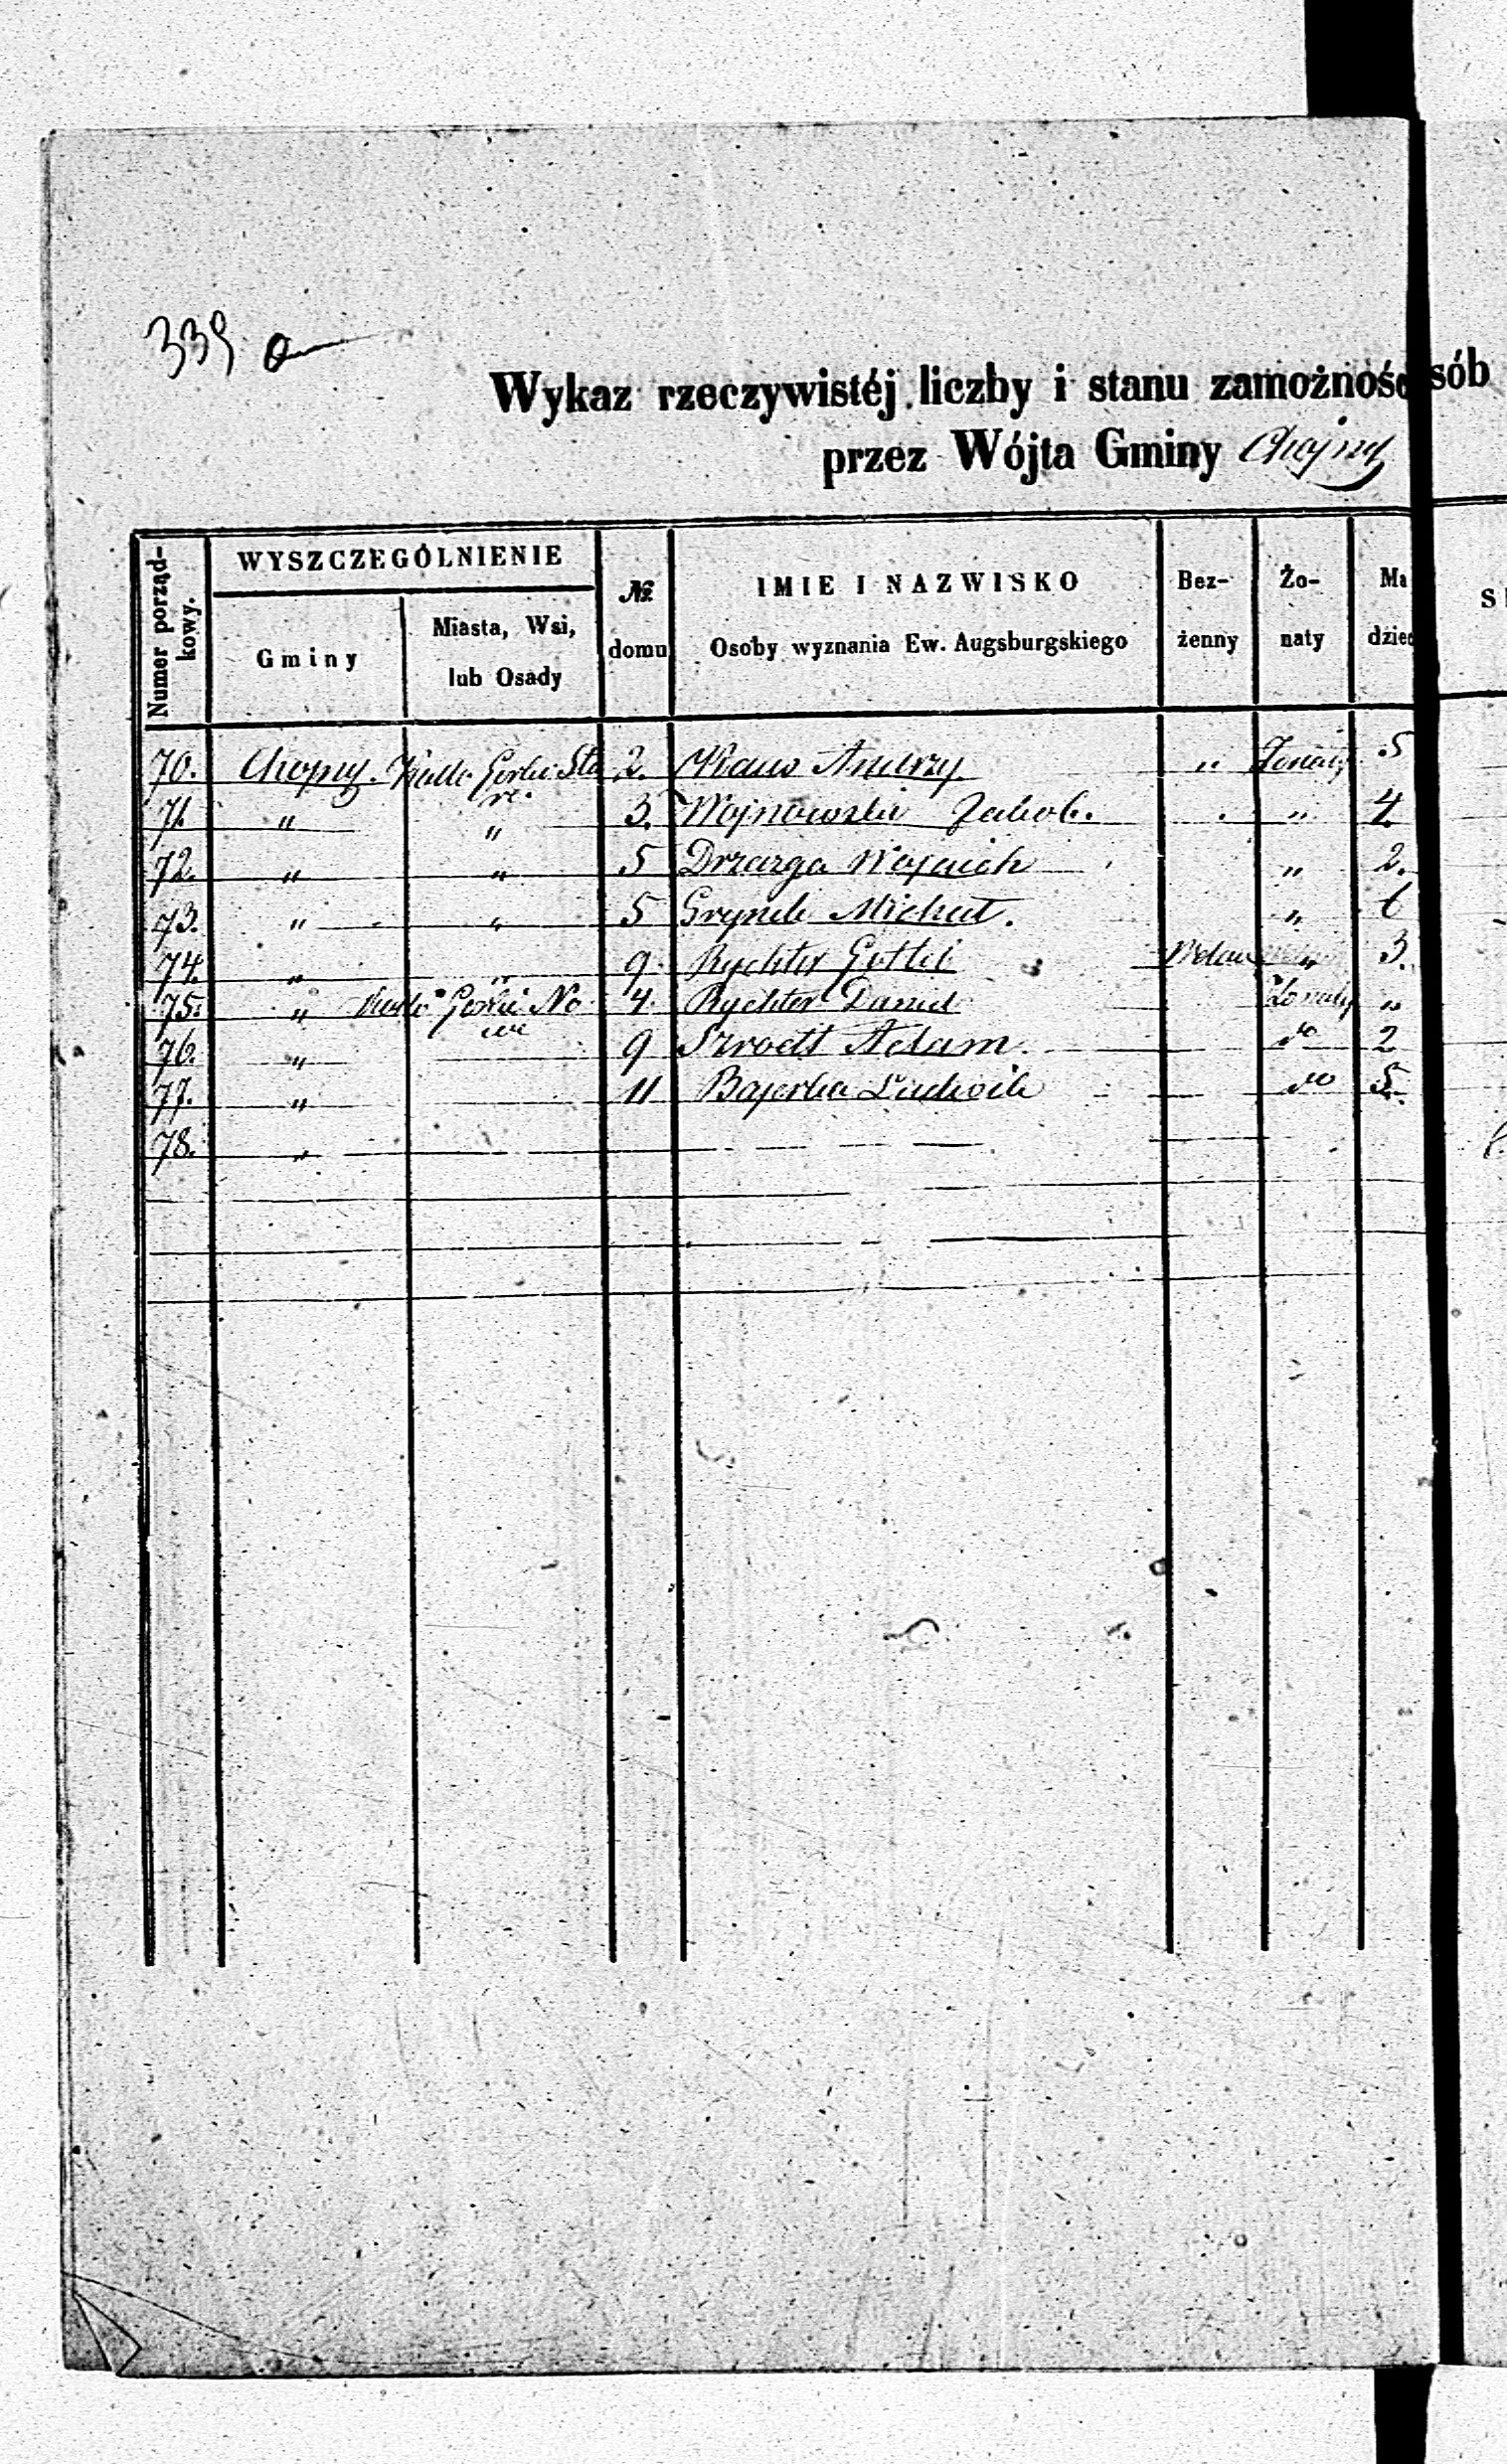 339 a
Wykaz rzeczywistéj liczby i stanu zamożnośc sób
przez Wójta Gminy Chojny
Numer porząd-
kowy.
WYSZCZEGÓLNIENIE
Gminy
Miasta, Wsi,
lub Osady
№
domu
IMIE I NAZWISKO
Osoby wyznania Ew. Augsburgskiego
Bez-
żenny
Żo-
naty
Ma
dziec
70. Chojny. Górki Sta 2. Andrzy „ Żonaty 5
re.
71. „ „ 3. Wojnowski Jakob. „ 4.
72. „ „ 5 Drzazga Wojciech „ 2.
73. „ „ 5 Michał. „
74. „ „ 9. Rychter Gotlib „ 3.
75. „ Górki No 4. Rychter Daniel Żonaty „
we
76. „ 9 Adam. do 2
77. „ 11 Bajerke Ludwik do 5.
78. „